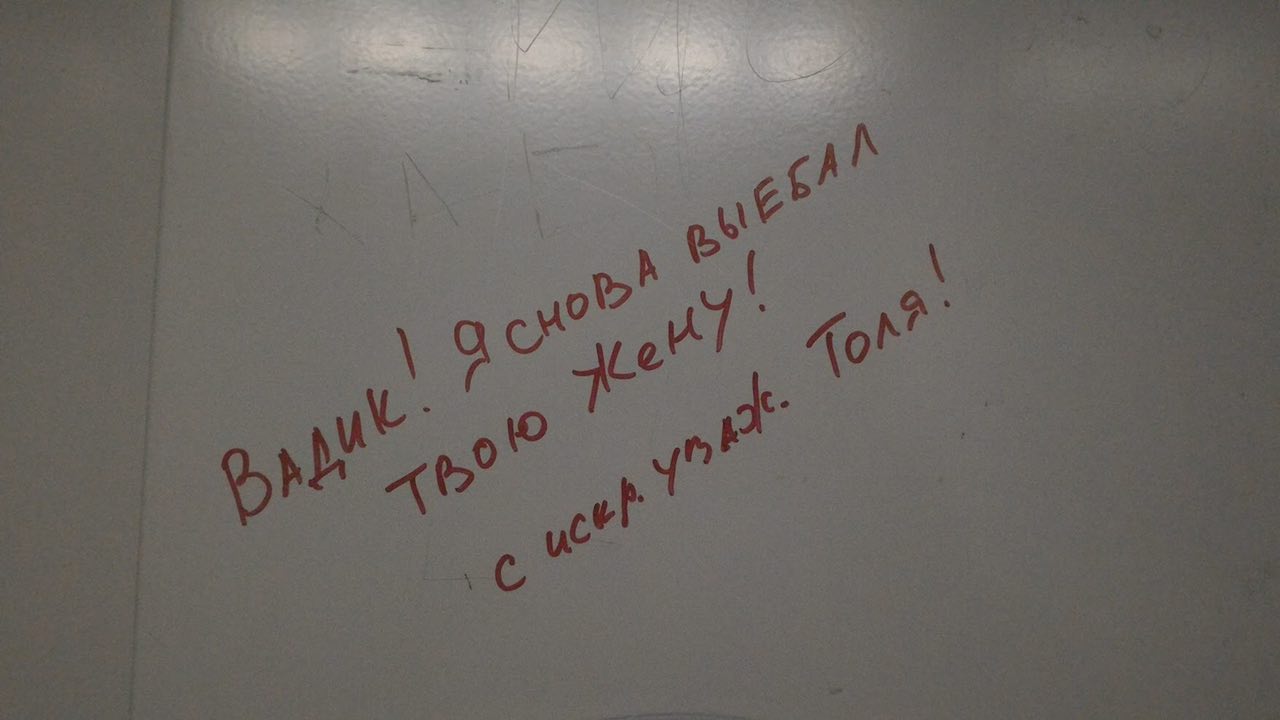 Вадик! Я снова выебал
твою жену!
с искр. уваж. Толя!